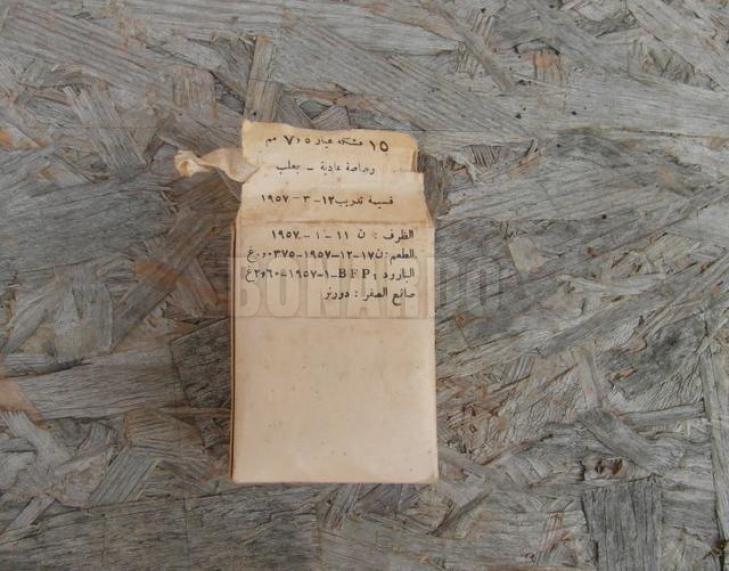 ١٥ فشكه عيار ٧٫٥ مم
رصاصة عادية - بعلب
قسيمة تدريب ١٢-٣-١٩٥٧
الظرف : ن ١١-١-١٩٥٧
الطعم : ن ١٧-١٢-١٩٥٧-٠٫٠٣٧٥غ
البارود : BFP١-١-١٩٥٧-٢٫٦٠غ
صانع الصفر : دورنر
BONARDO